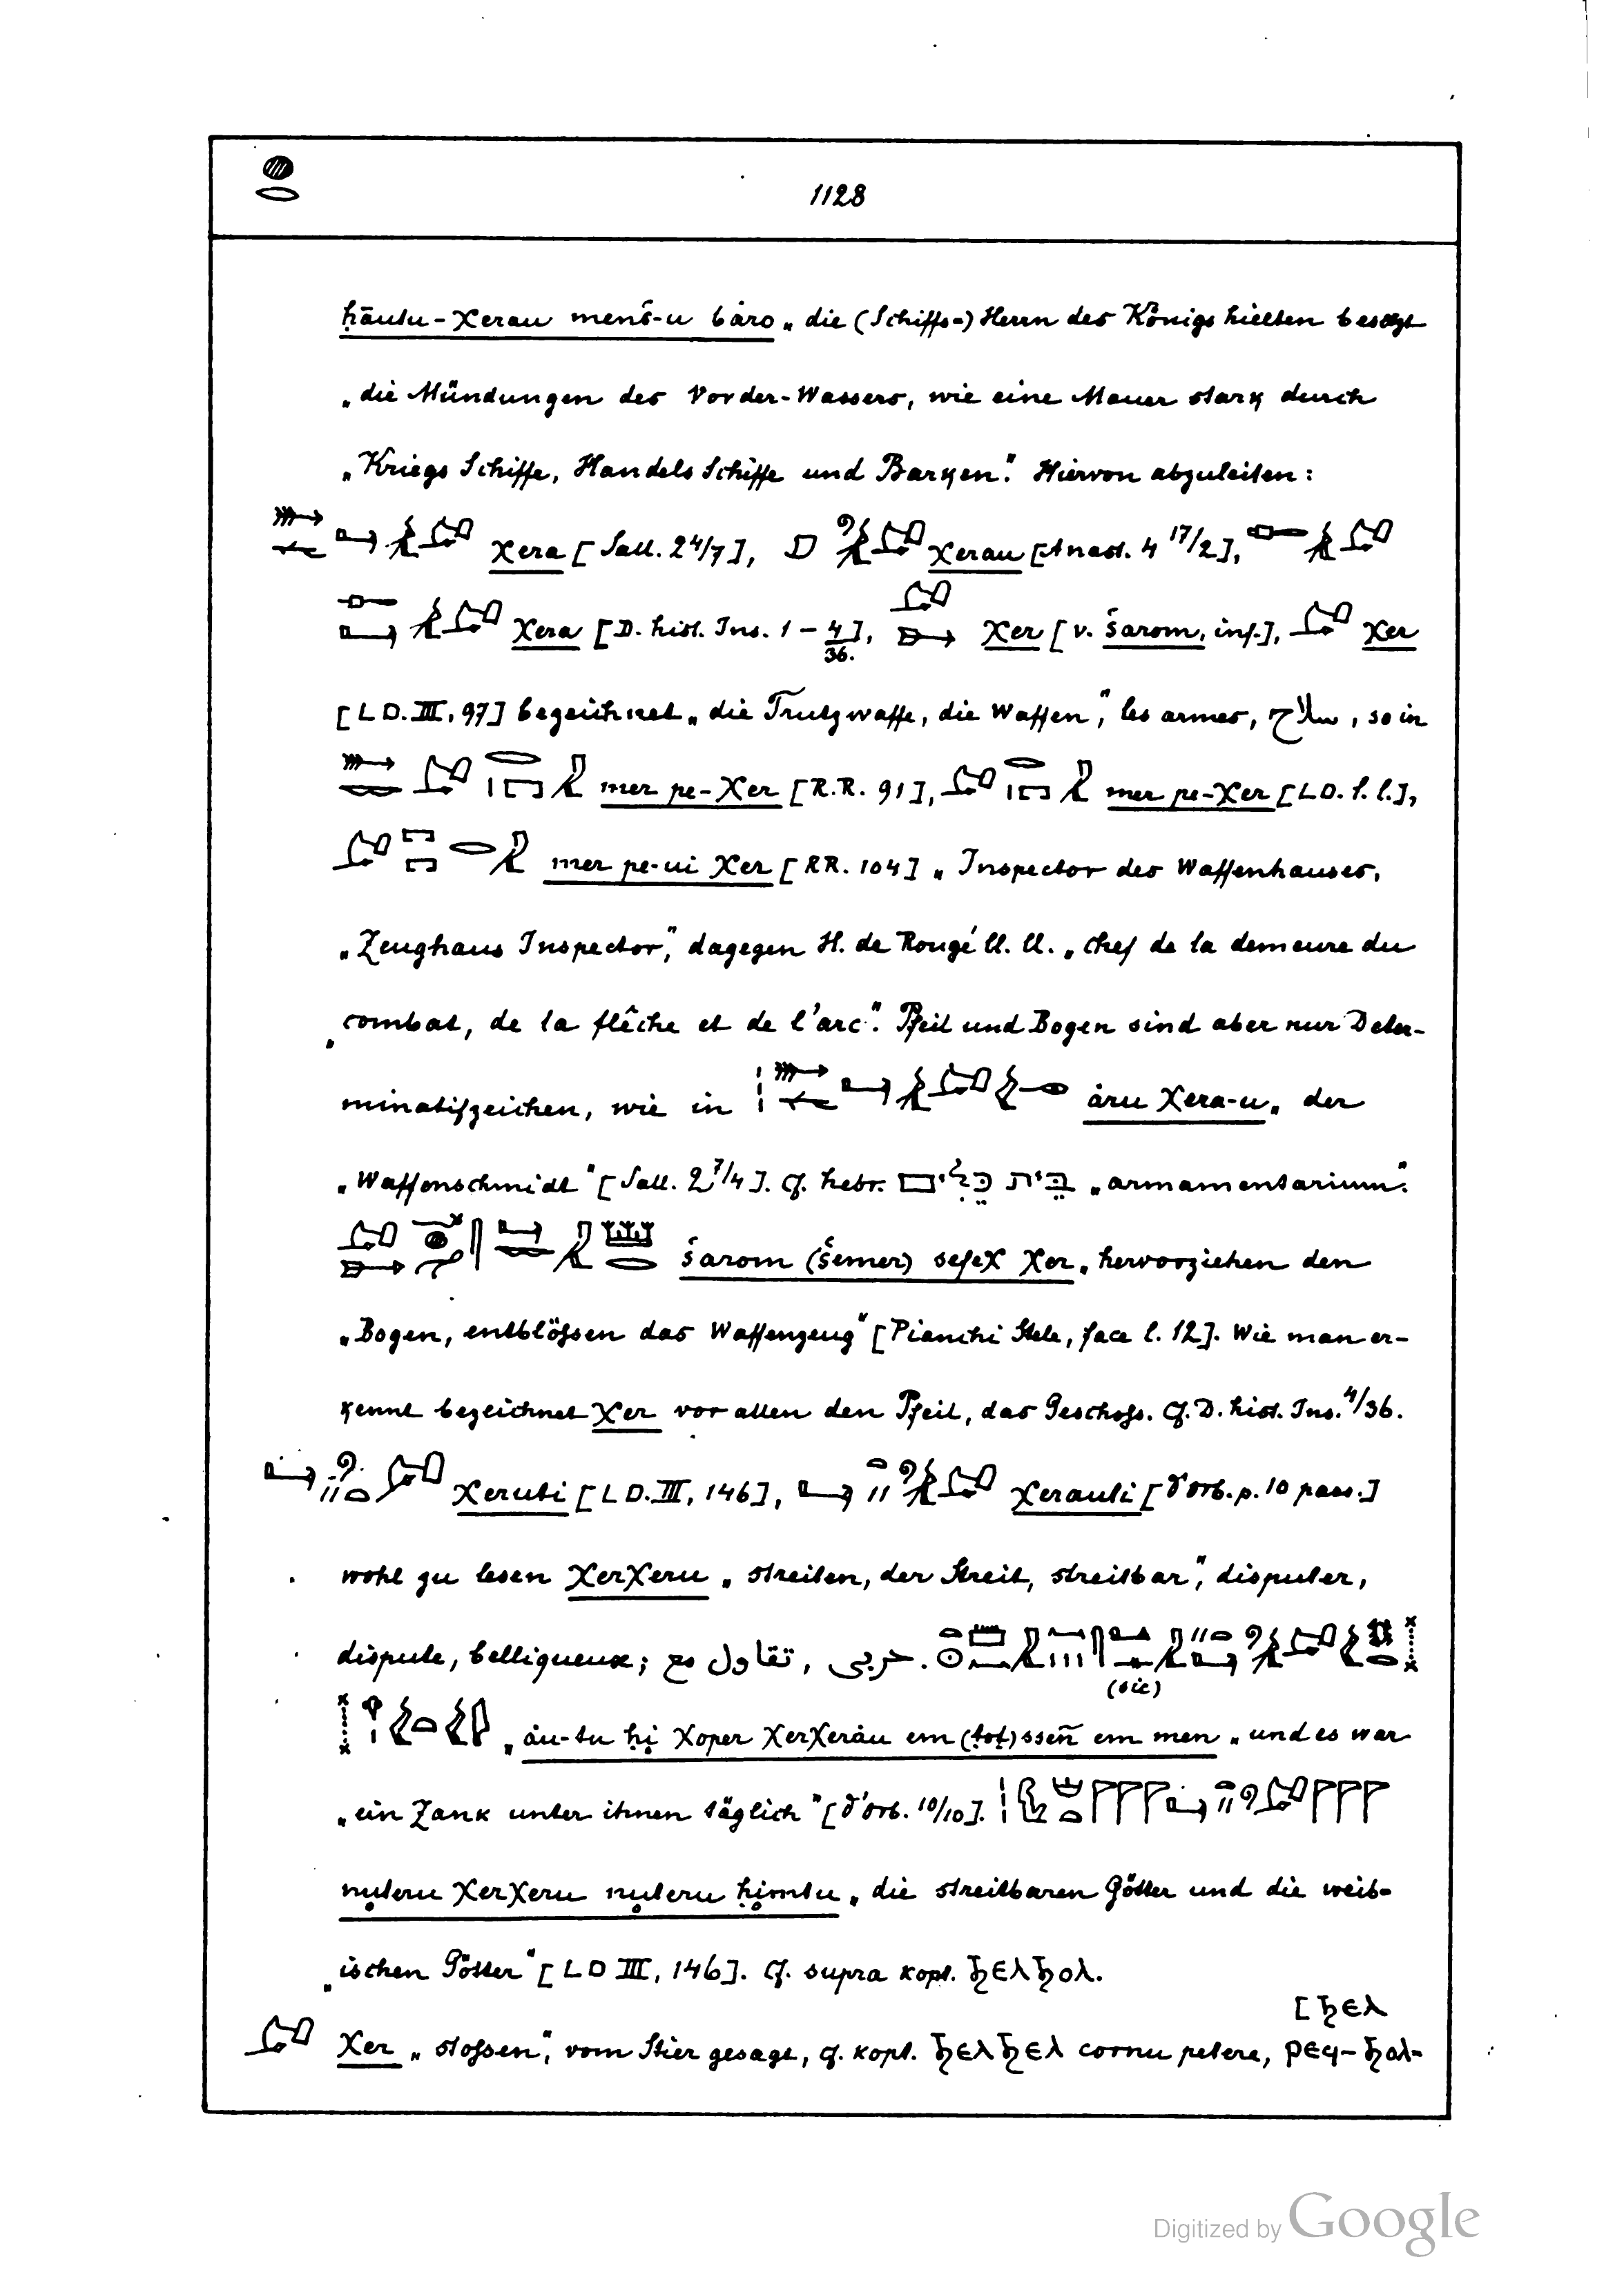 1128
ḥāutu-χerau menš-u bȧro „die (Schiffs=) Herrn des Königs hielten besetzt
„die Mündungen des Vorder-Wassers, wie eine Mauer stark durch
„Kriegs Schiffe, Handels Schiffe und Barken“. Hiervon abzuleiten:
χera [Sall. 2 4/7], χerau [Anast. 4 17/2],
χera [D. hist. Ins. 1 – 4/36.], χer [v. šarom, inf.], χer
[LD. III, 97] bezeichnet „die Trutzwaffe, die Waffen“, les armes, سلاح, so in
mer pe-χer [R.R. 91], mer pe-χer [LD. l. l.],
mer pe-ui χer [RR. 104] „Inspector des Waffenhauses,
„Zeughaus Inspector“, dagegen H. de Rougé ll. ll. „chef de la demeure du
„combat, de la flêche et de l'arc“. Pfeil und Bogen sind aber nur Deter-
minatifzeichen, wie in ȧru χera-u „der
„Waffenschmidt“ [Sall. 2 7/4]. cf. hebr. בֵּית כֵּלִים „armamentarium“.
šarom (šemer) sefeχ χer „hervorziehen den
„Bogen, entblössen das Waffenzeug“ [Pianchi Stele, face l. 12]. Wie man er-
kennt bezeichnet χer vor allen den Pfeil, das Geschoss. cf. D. hist. Ins. 4/36.
χeruti [LD. III, 146], χerauti [d'Orb. p. 10 pass.]
wohl zu lesen χerχeru „streiten, der Streit, streitbar“, disputer,
dispute, belliqueux; تقاول مع, حربى.
(sic)
„ȧu-tu ḥi χoper χerχerȧu em (ṭoṭ) sseñ em men „und es war
„ein Zank unter ihnen täglich“ [d'Orb. 10/10].
nuteru χerχeru nuteru ḥimtu „die streitbaren Götter und die weib=
„ischen Götter“ [LD III, 146]. cf. supra kopt. ϧⲉⲗϧⲟⲗ.
[ϧⲉⲗ
χer „stossen“, vom Stier gesagt, cf. kopt. ϧⲉⲗϧⲉⲗ cornu petere, ⲣⲉϥ-ϧⲟⲗ=
Digitized by Google